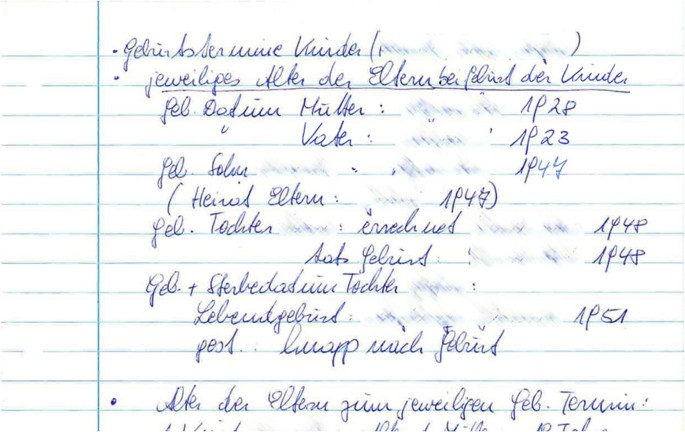 · Geburtstermine Kinder ( )
· jeweiliges Alter der Eltern bei Geburt der Kinder
Geb. Datum Mutter : 1928
" Vater : 1923
Geb. Sohn " " 1947
( Heirat Eltern : 1947)
Geb. Tochter : errechnet 1948
tats. Geburt : 1948
Geb. + Sterbedatum Tochter :
Lebendgeburt : 1951
gest. : knapp nach Geburt
· Alter der Eltern zum jeweiligen Geb. Termin :